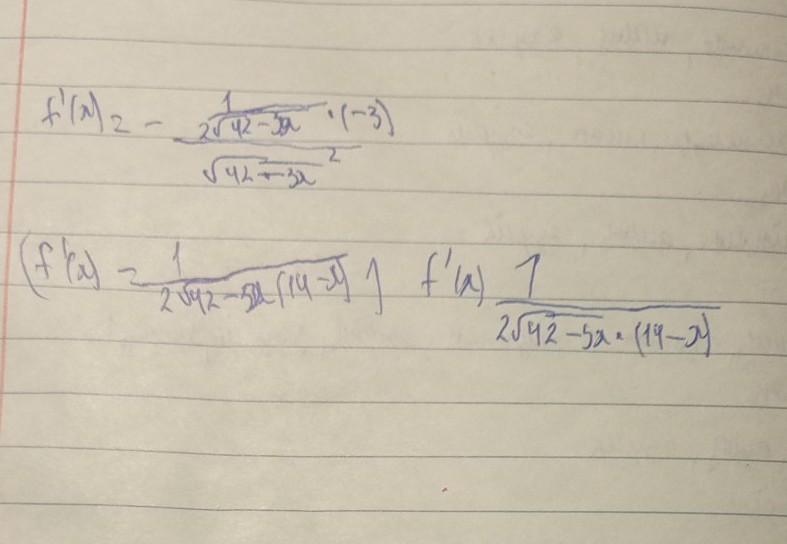 f'(x) = - (1/(2√42-3x) · (-3)) / (√42-3x²)
(f'(x) = 1/(2√42-3x(14-x))) f'(x) 1/(2√42-3x · (14-x))